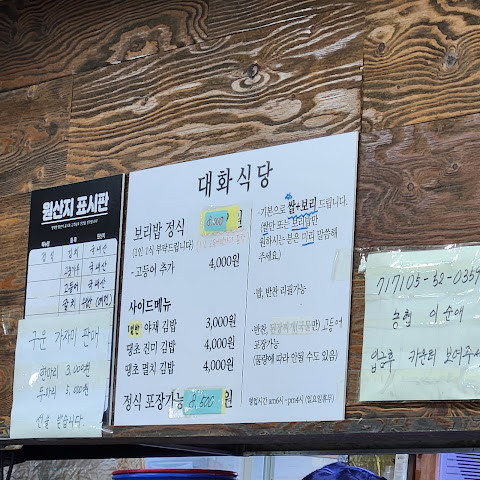 대화식당
보리밥 정식 8,000원
(1인 1식 부탁드립니다)
-고등어 추가 4,000원
사이드메뉴
일반 야채 김밥 3,000원
땡초 진미 김밥 4,000원
땡초 멸치 김밥 4,000원
정식 포장가능 8,500원
·기본으로 쌀+보리 드립니다.
(쌀만 또는 보리밥만
원하시는 분은 미리 말씀해
주세요)
·밥, 반찬 리필가능
·반찬, 된장찌개(국물만) 고등어
포장가능
(물량에 따라 안될 수도 있음)
영업시간 am6시~pm4시 (일요일휴무)
원산지 표시판
김치 국내산
고등어 국내산
구운 가자미 판매
한마리 3,000원
두마리 5,000원
선불 받습니다
717105-52-0359
농협 이순애
입금후 카운터 보여주세